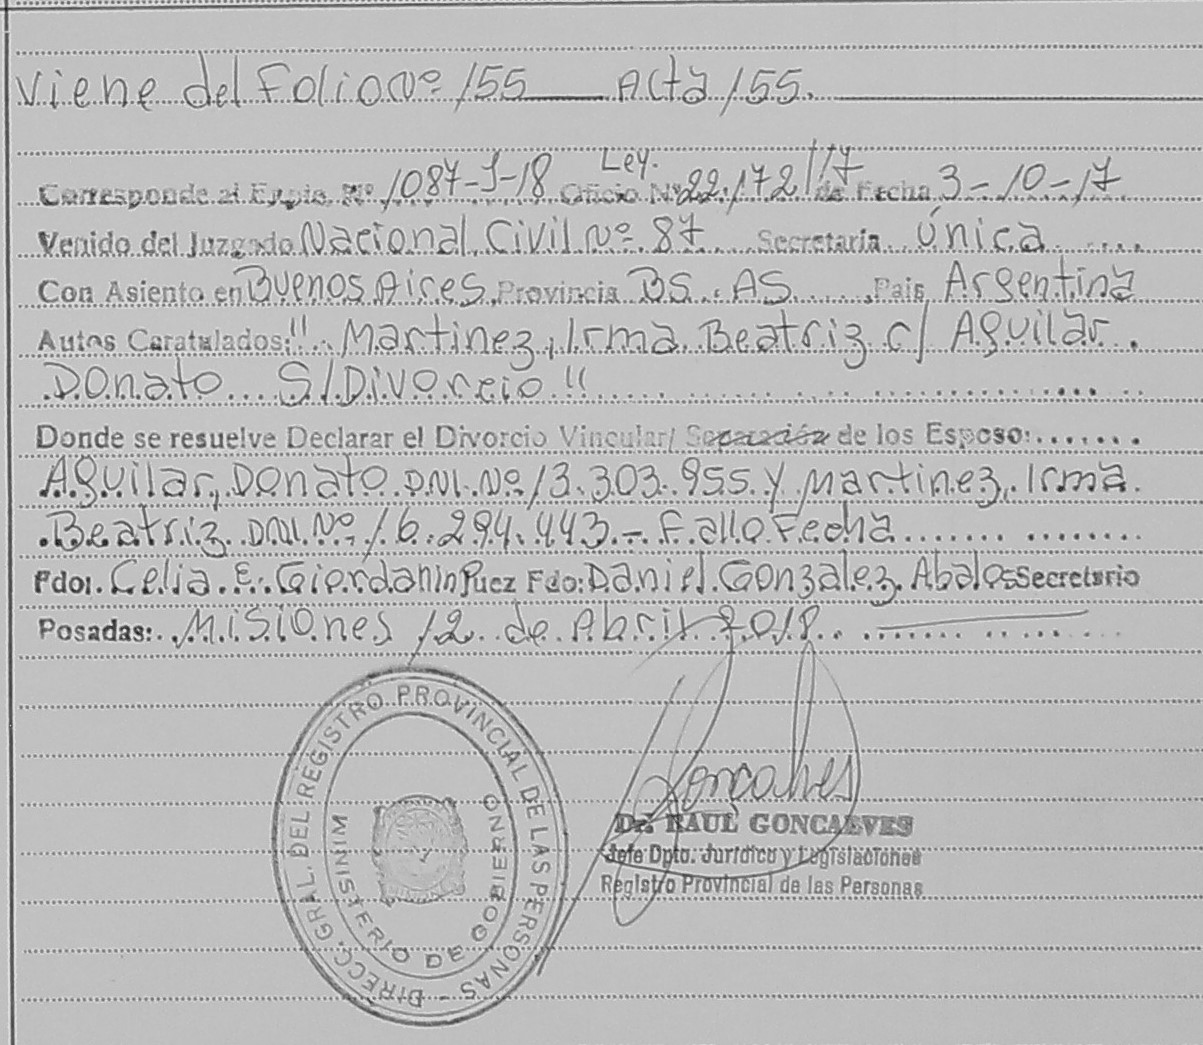 Viene del Folio Nº 155 Acta 155.
Corresponde al Expte. Nº 1087-J-18 Ley. Oficio Nº 22.172/17 de Fecha 3-10-17
Venido del Juzgado Nacional Civil Nº 87 Secretaria Única
Con Asiento en Buenos Aires Provincia BS. AS. Pais Argentina
Autos Caratulados: "Martinez, Irma Beatriz c/ Aguilar
Donato S/Divorcio"
Donde se resuelve Declarar el Divorcio Vincular/ Separación de los Esposo:
Aguilar, Donato DNI. Nº 13.303.955 y Martinez, Irma
Beatriz DNI. Nº 16.294.443.- Fallo Fecha
Fdo: Celia E. Giordanin Juez Fdo: Daniel Gonzalez Abalos Secretario
Posadas: Misiones 12 de Abril 2018
DIRECC. GRAL. DEL REGISTRO PROVINCIAL DE LAS PERSONAS -
MINISTERIO DE GOBIERNO
Goncalves
Dr. RAUL GONCALVES
Jefe Dpto. Jurídico y Legislaciones
Registro Provincial de las Personas